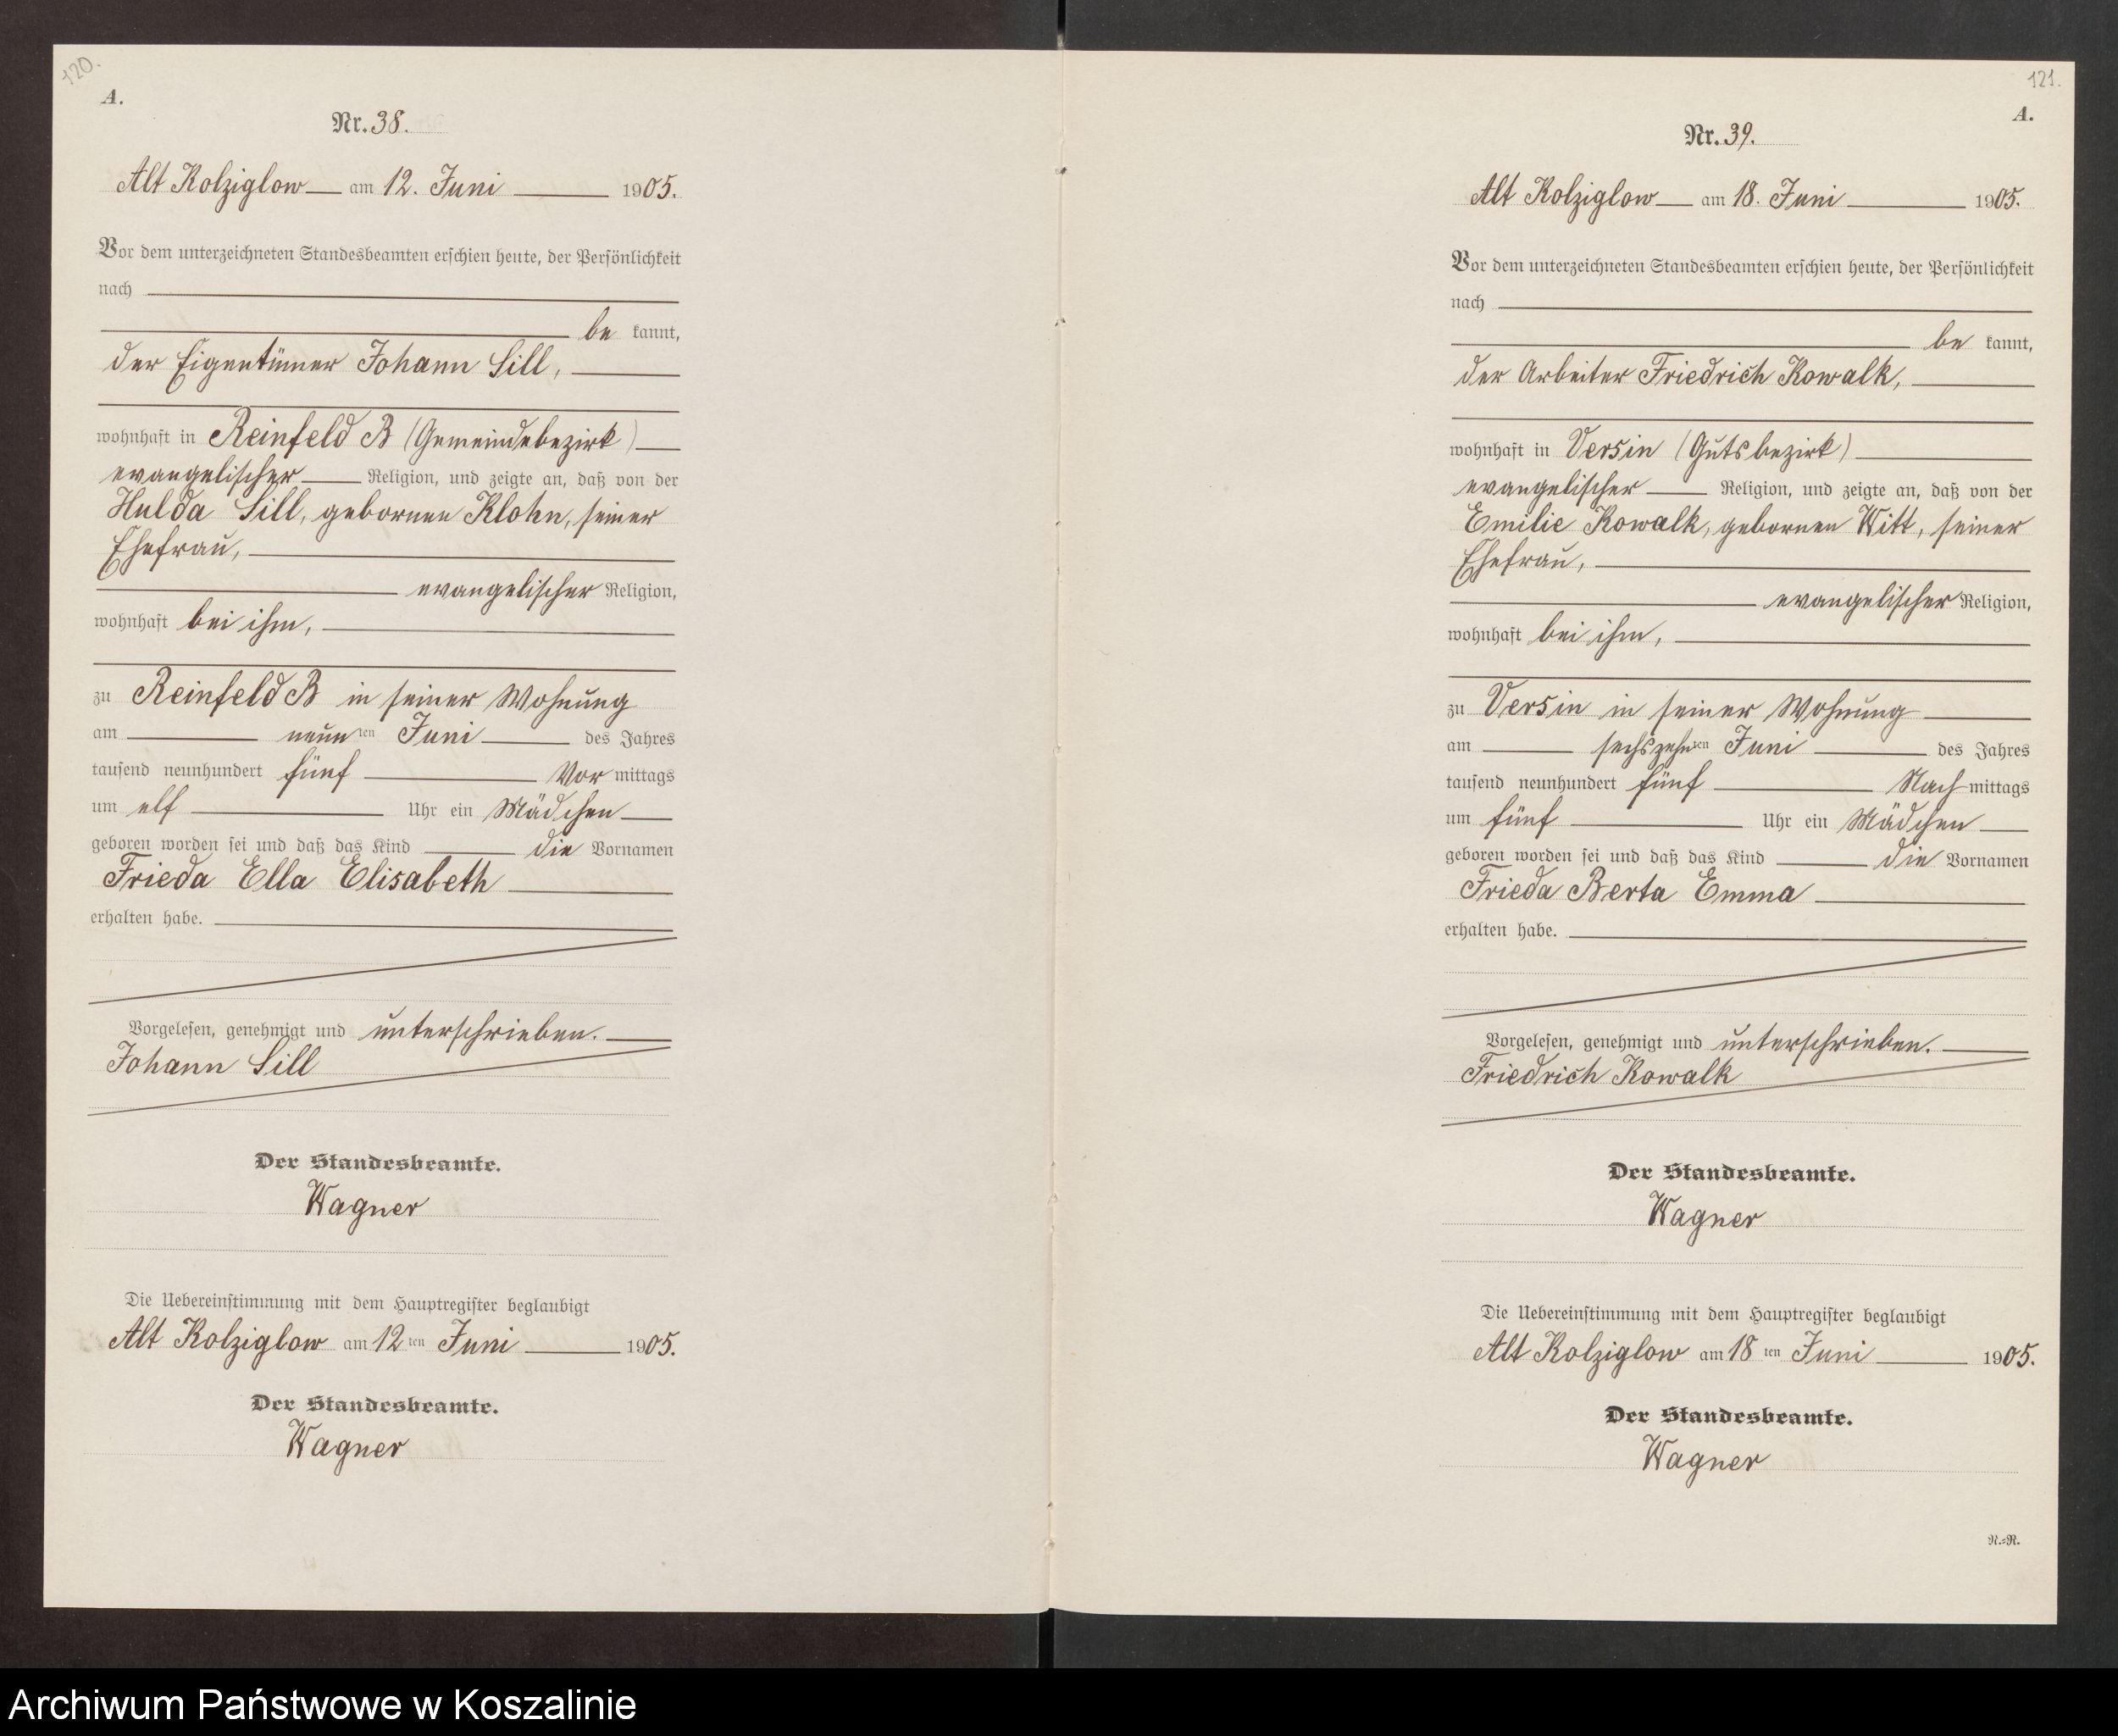 120.
A.
Nr. 38.
Alt Kolziglow am 12. Juni 1905.
Vor dem unterzeichneten Standesbeamten erschien heute, der Persönlichkeit
nach
be kannt,
der Eigentümer Johann Sill,
wohnhaft in Reinfeld B (Gemeindebezirk)
evangelischer Religion, und zeigte an, daß von der
Hulda Sill, gebornen Klohn, seiner
Ehefrau,
evangelischer Religion,
wohnhaft bei ihm,
zu Reinfeld B in seiner Wohnung
am neun ten Juni des Jahres
tausend neunhundert fünf Vor mittags
um elf Uhr ein Mädchen
geboren worden sei und daß das Kind die Vornamen
Frieda Ella Elisabeth
erhalten habe.
Vorgelesen, genehmigt und unterschrieben.
Johann Sill
Der Standesbeamte.
Wagner
Die Uebereinstimmung mit dem Hauptregister beglaubigt
Alt Kolziglow am 12 ten Juni 1905.
Der Standesbeamte.
Wagner
121.
A.
Nr. 39.
Alt Kolziglow am 18. Juni 1905.
Vor dem unterzeichneten Standesbeamten erschien heute, der Persönlichkeit
nach
be kannt,
der Arbeiter Friedrich Kowalk,
wohnhaft in Versin (Gutsbezirk)
evangelischer Religion, und zeigte an, daß von der
Emilie Kowalk, gebornen Witt, seiner
Ehefrau,
evangelischer Religion,
wohnhaft bei ihm,
zu Versin in seiner Wohnung
am sechszehn ten Juni des Jahres
tausend neunhundert fünf Nach mittags
um fünf Uhr ein Mädchen
geboren worden sei und daß das Kind die Vornamen
Frieda Berta Emma
erhalten habe.
Vorgelesen, genehmigt und unterschrieben.
Friedrich Kowalk
Der Standesbeamte.
Wagner
Die Uebereinstimmung mit dem Hauptregister beglaubigt
Alt Kolziglow am 18 ten Juni 1905.
Der Standesbeamte.
Wagner
N.=R.
Archiwum Państwowe w Koszalinie